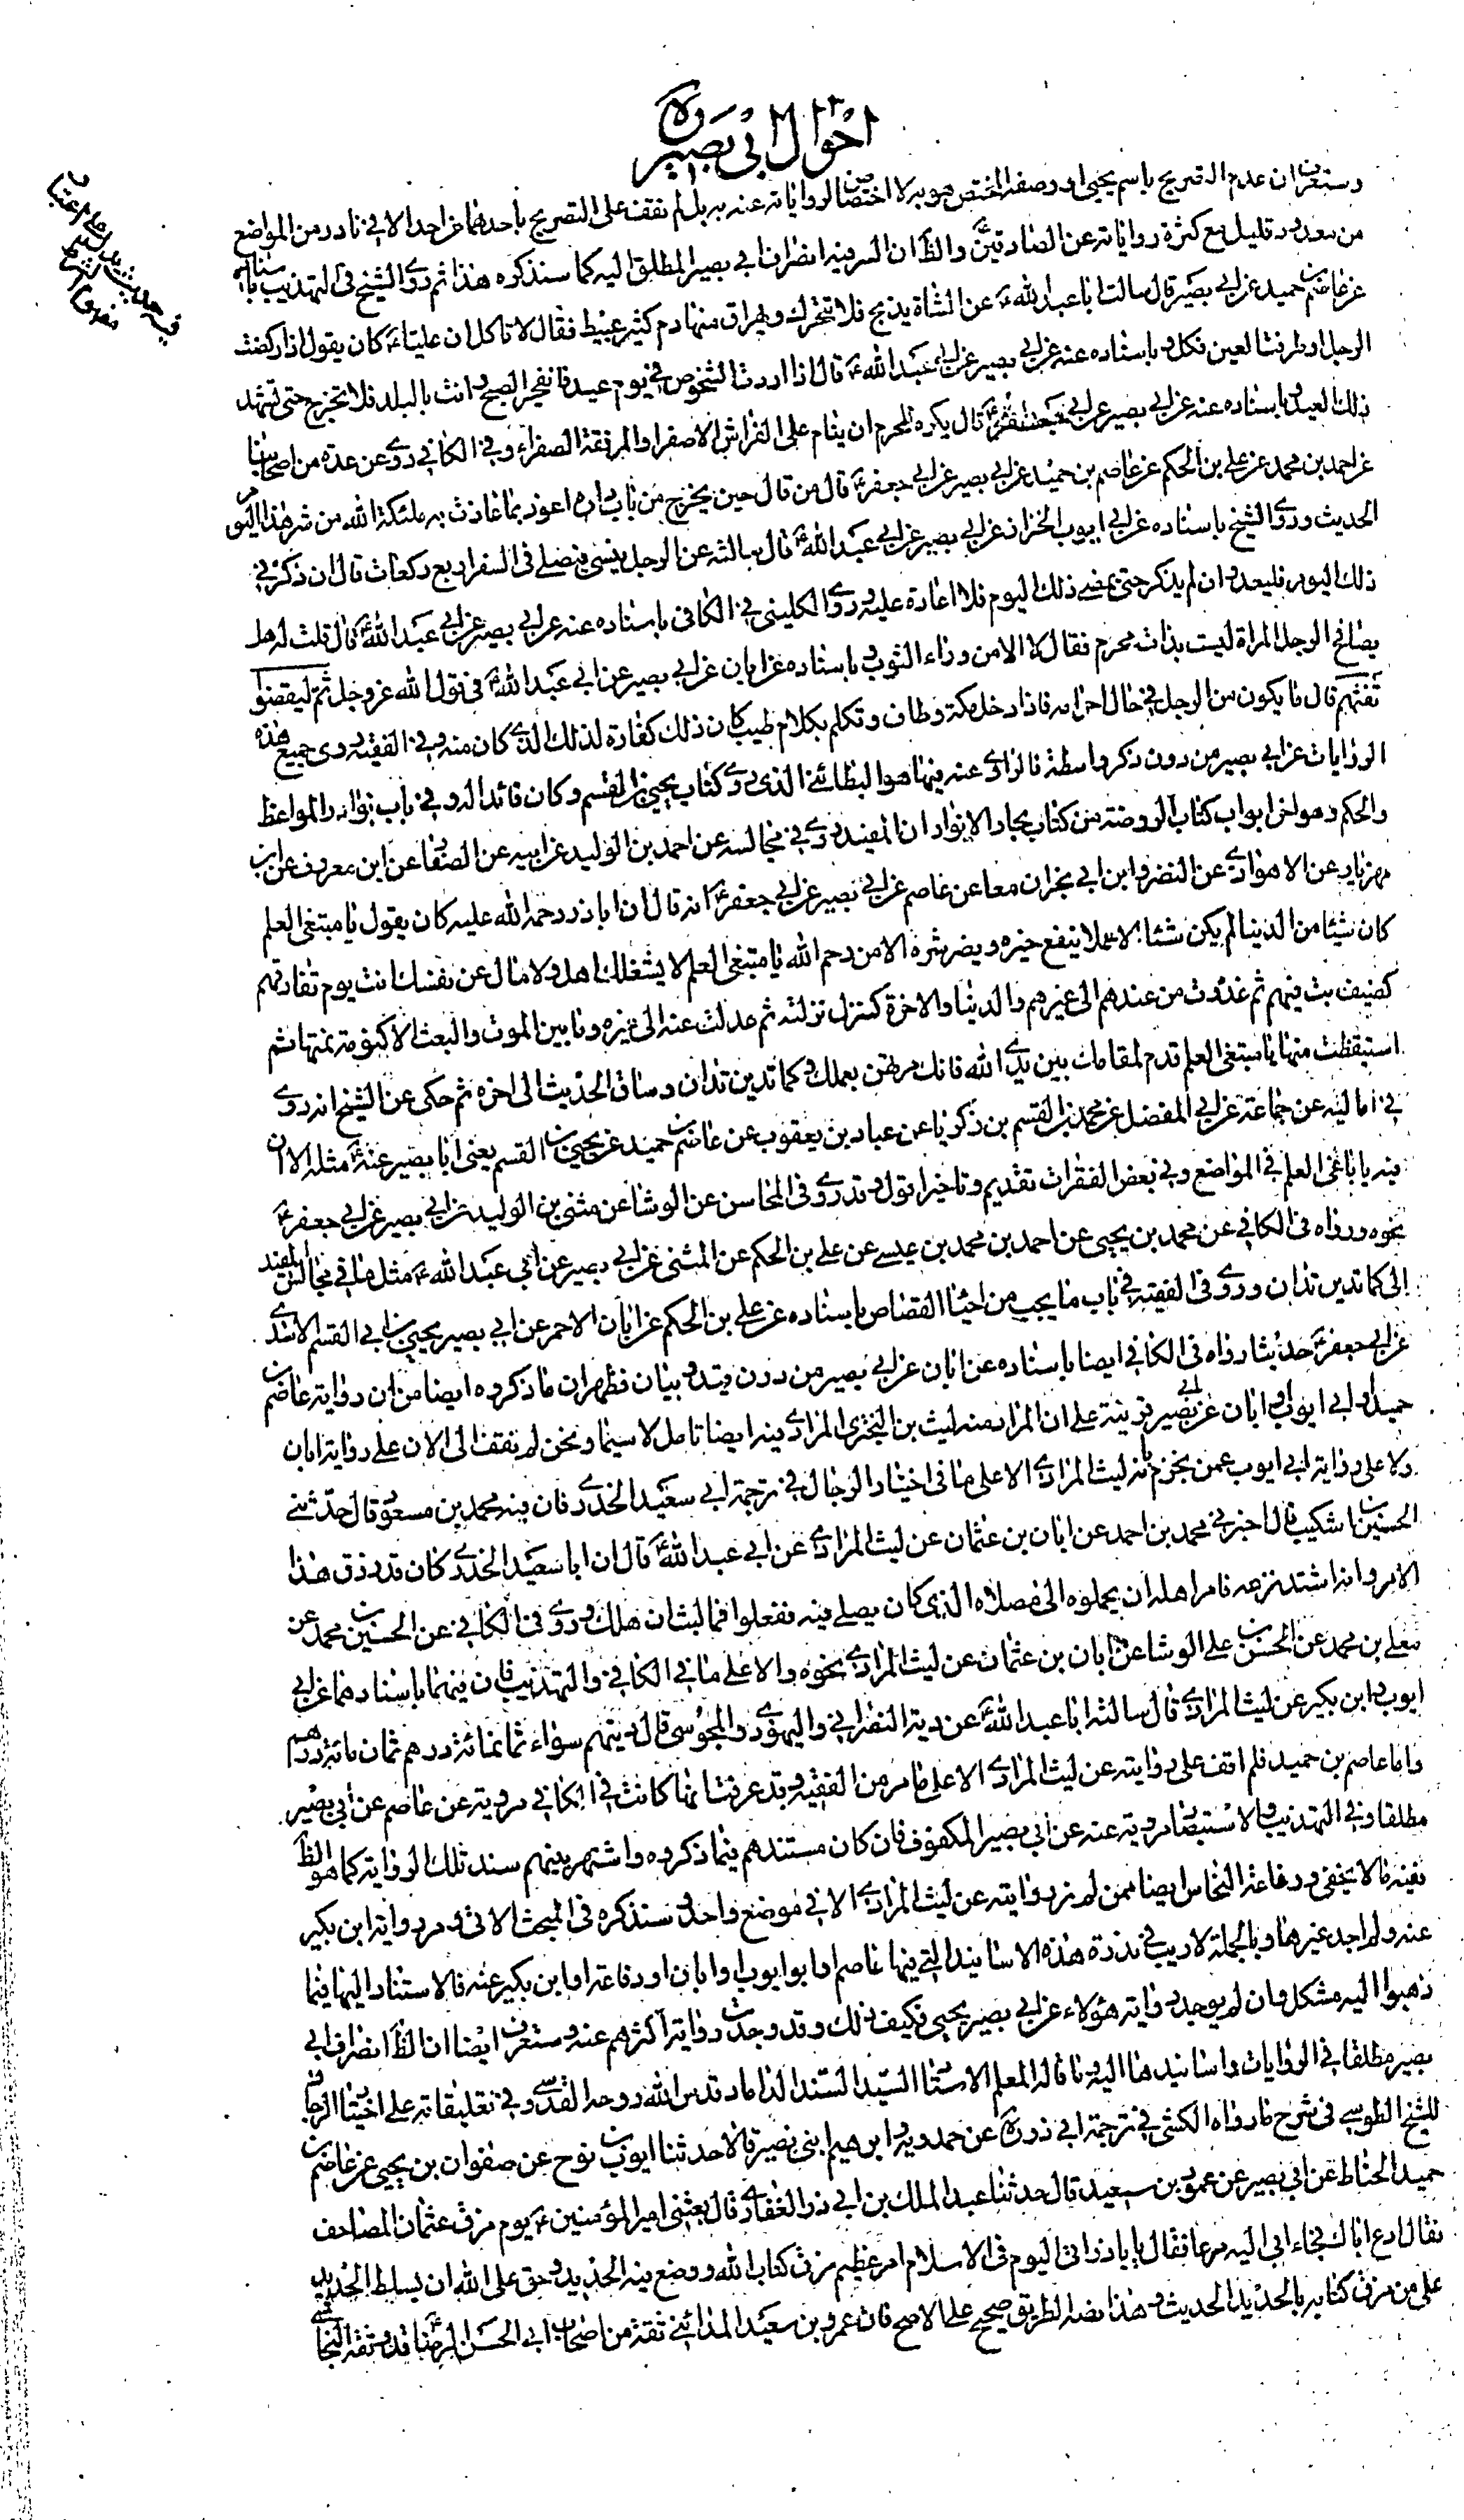 احوال ابی بصیر
وستعرف ان عدم التصریح باسم یحیی او وصفه المختص هو به لا اختصاص الروایات عنه به بل لم نقف علی التصریح باحدهما عن احد الا فی نادر من المواضع
من معدود قلیل مع کثرة روایاته عن الصادقین والظ ان السر فیه انصراف ابی بصیر المطلق الیه کما سنذکره هذا ثم روی الشیخ فی التهذیب باسناده
عن عاصم بن حمید عن ابی بصیر قال سالت ابا عبدالله ع عن الشاة یذبح فلا تتحرک ویهراق منها دم کثیر عبیط فقال لا تاکل ان علیا ع کان یقول اذا رکضت
الرجل او طرفت العین فکل وباسناده عنه عن ابی بصیر عن ابی عبدالله ع قال اذا اردت الشخوص فی یوم عید فانفجر الصبح وانت بالبلد فلا تخرج حتی تشهد
ذلک العید وباسناده عنه عن ابی بصیر عن ابی جعفر ع قال یکره للمحرم ان ینام علی الفراش الاصفر والمرفقة الصفراء وفی الکافی روی عن عدة من اصحابنا
عن احمد بن محمد عن علی بن الحکم عن عاصم بن حمید عن ابی بصیر عن ابی جعفر ع قال من قال حین یخرج من باب داره اعوذ بما عاذت به ملئکة الله من شر هذا الیوم
الحدیث وروی الشیخ باسناده عن ابی ایوب الخزاز عن ابی بصیر عن ابی عبدالله ع قال سالته عن الرجل ینسی فیصلی فی السفر اربع رکعات قال ان ذکر فی
ذلک الیوم فلیعد وان لم یذکر حتی یمضی ذلک الیوم فلا اعادة علیه وروی الکلینی فی الکافی باسناده عنه عن ابی بصیر عن ابی عبدالله ع قال قلت له هل
یصافح الرجل المراة لیست بذات محرم فقال لا الا من وراء الثوب وباسناده عن ابان عن ابی بصیر عن ابی عبدالله ع فی قول الله عز وجل ثم لیقضوا
تفثهم قال ما یکون من الرجل فی حال احرامه فاذا دخل مکة وطاف وتکلم بکلام طیب کان ذلک کفارة لذلک الذی کان منه وفی الفقیه روی جمیع هذه
الروایات عن ابی بصیر من دون ذکر واسطة فالراوی عنه فیها هو البطائنی الذی روی کتاب یحیی بن القسم وکان قائدا له وفی باب نوادر المواعظ
والحکم وهو اخر ابواب کتاب الروضة من کتاب بحار الانوار ان المفید روی فی مجالسه عن احمد بن الولید عن ابیه عن الصفار عن ابن معروف عن ابن
مهزیار عن الاهوازی عن النضر وابن ابی نجران معا عن عاصم عن ابی بصیر عن ابی جعفر ع انه قال ان اباذر رحمه الله علیه کان یقول یا مبتغی العلم
کان شیئا من الدنیا لم یکن شیئا الا عملا ینفع خیره ویضر شره الا من رحم الله یا مبتغی العلم لا یشغلک اهل ولا مال عن نفسک انت یوم تفارقهم
کضیف بت فیهم ثم غدوت من عندهم الی غیرهم والدنیا والاخرة کمنزل نزلته ثم عدلت عنه الی غیره وما بین الموت والبعث الا کنومة نمتها ثم
استیقظت منها یا مبتغی العلم قدم لمقامک بین یدی الله فانک مرتهن بعملک وکما تدین تدان وساق الحدیث الی اخره ثم حکی عن الشیخ انه روی
فی امالیه عن جماعة عن ابی المفضل عن محمد بن القسم بن زکریا عن عباد بن یعقوب عن عاصم بن حمید عن یحیی بن القسم یعنی ابا بصیر عنه ع مثله الا ان
فیه یا باغی العلم فی المواضع وفی بعض الفقرات تقدیم وتاخیر اقول وقد روی فی المحاسن عن الوشا عن مثنی بن الولید عن ابی بصیر عن ابی جعفر ع
نحوه ورواه فی الکافی عن محمد بن یحیی عن احمد بن محمد بن عیسی عن علی بن الحکم عن المثنی عن ابی بصیر عن ابی عبدالله ع مثل ما فی مجالس المفید
الی کما تدین تدان وروی فی الفقیه فی باب ما یجب من احیا القصاص باسناده عن علی بن الحکم عن ابان الاحمر عن ابی بصیر یحیی بن ابی القسم الاسدی
عن ابی جعفر ع حدیثا رواه فی الکافی ایضا باسناده عن ابان عن ابی بصیر من دون قید وبیان فظهر ان ما ذکروه ایضا من ان روایة عاصم بن
حمید او ابی ایوب او ابان عن ابی بصیر قرینة علی ان المراد منه لیث بن البختری المرادی فیه ایضا تامل لا سیما ونحن لم نقف الی الان علی روایة ابان
ولا علی روایة ابی ایوب عمن یجزم بانه لیث المرادی الا علی ما فی اختیار الرجال فی ترجمة ابی سعید الخدری فان فیه محمد بن مسعود قال حدثنی
الحسین بن اشکیب قال اخبرنی محمد بن احمد عن ابان بن عثمان عن لیث المرادی عن ابی عبدالله ع قال ان ابا سعید الخدری کان قد رزق هذا
الامر وانه اشتد نزعه فامر اهله ان یحملوه الی مصلاه الذی کان یصلی فیه ففعلوا فما لبث ان هلک وروی فی الکافی عن الحسین بن محمد عن
معلی بن محمد عن الحسن بن علی الوشا عن ابان بن عثمان عن لیث المرادی نحوه والا علی ما فی الکافی والتهذیب فان فیهما باسنادهما عن ابی
ایوب وابن بکیر عن لیث المرادی قال سالت ابا عبدالله ع عن دیة النصرانی والیهودی والمجوسی قال دیتهم سواء ثمانمائة درهم ثمان مائة درهم
واما عاصم بن حمید فلم اقف علی روایته عن لیث المرادی الا علی ما مر من الفقیه وقد عرفت انها کانت فی الکافی مرویة عن عاصم عن ابی بصیر
مطلقا وفی التهذیب والاستبصار مرویة عنه عن ابی بصیر المکفوف فان کان مستندهم فیما ذکروه واشتهر بینهم سند تلک الروایة کما هو الظ
ففیه ما لا یخفی ورفاعة النخاس ایضا ممن لم نر روایته عن لیث المرادی الا فی موضع واحد وسنذکره فی المبحث الاتی ومر روایة ابن بکیر
عنه ولم اجد غیرها وبالجملة لا ریب فی ندرة هذه الاسانید التی فیها عاصم او ابو ایوب او ابان او رفاعة او ابن بکیر عنه فالاستناد الیها فیما
ذهبوا الیه مشکل وان لم یوجد روایة هؤلاء عن ابی بصیر یحیی فکیف ذلک وقد وجدت روایة اکثرهم عنه وستعرف ایضا ان الظ انصراف ابی
بصیر مطلقا فی الروایات واسانیدها الیه وما قاله المعلم الاستاد السید السند الداماد قدس الله روحه القدسی وفی تعلیقاته علی اختیار الرجال
للشیخ الطوسی فی شرح ما رواه الکشی فی ترجمة ابی ذر ره عن حمدویه وابرهیم ابنی نصیر قالا حدثنا ایوب بن نوح عن صفوان بن یحیی عن عاصم بن
حمید الحناط عن ابی بصیر عن عمرو بن سعید قال حدثنا عبدالملک بن ابی ذر الغفاری قال بعثنی امیرالمؤمنین ع یوم مزق عثمان المصاحف
فقال ادع اباک فجاء ابی الیه مسرعا فقال یا باذر اتی الیوم فی الاسلام امر عظیم مزق کتاب الله ووضع فیه الحدید وحق علی الله ان یسلط الحدید
علی من مزق کتابه بالحدید الحدیث وهذا نصه الطریق صحیح علی الاصح فان عمرو بن سعید المدائنی ثقة من اصحاب ابی الحسن الرضا ع قد وثقه النجاشی